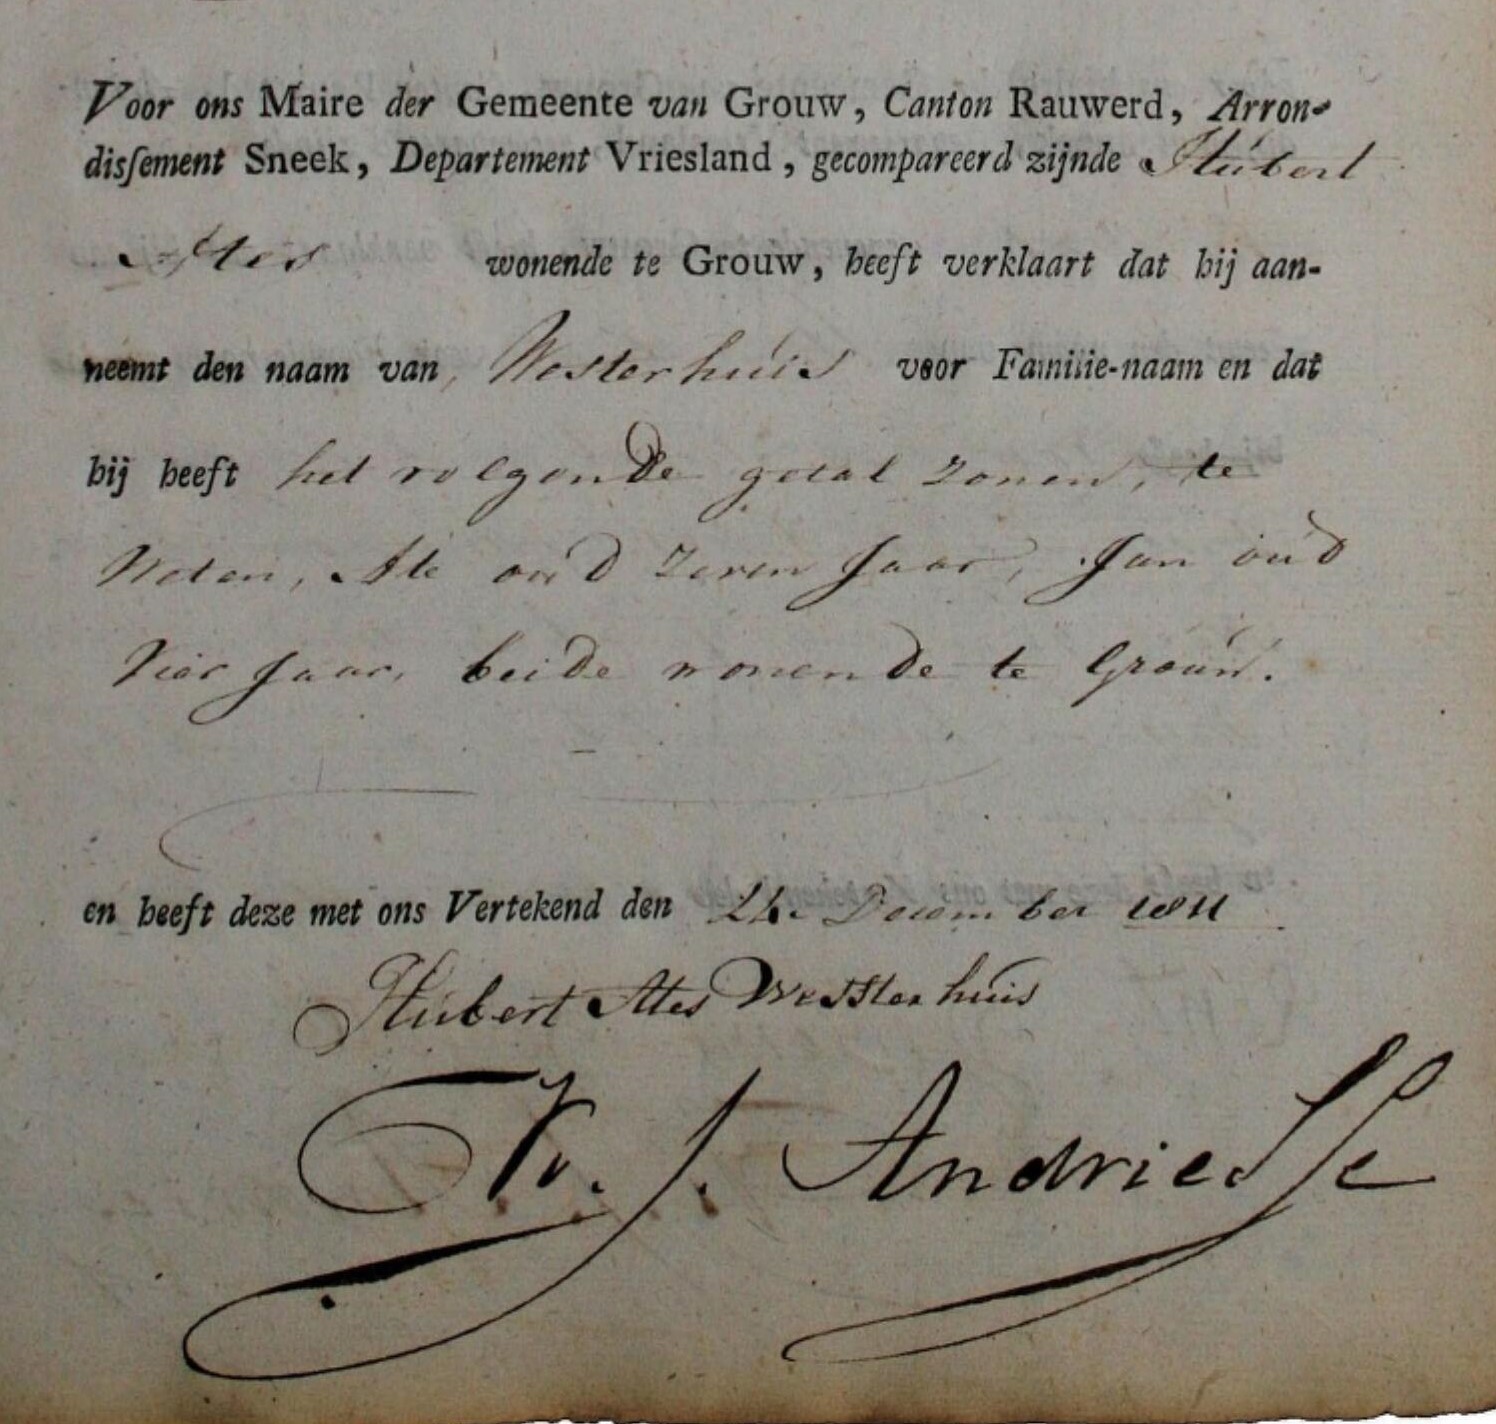 Voor ons Maire der Gemeente van Grouw, Canton Rauwerd, Arron-
disſement Sneek, Departement Vriesland, gecompareerd zijnde Hubert
Ates wonende te Grouw, heeft verklaart dat hij aan-
neemt den naam van Westerhuis voor Familie-naam en dat
hij heeft het volgende getal zonen, te
Weten, Ate oud zeven Jaar, Jan oud
Vier Jaar, beide wonende te Grouw.
en heeft deze met ons Vertekend den December 1811
Hubert Ates Wessterhuis
J. Andriesse